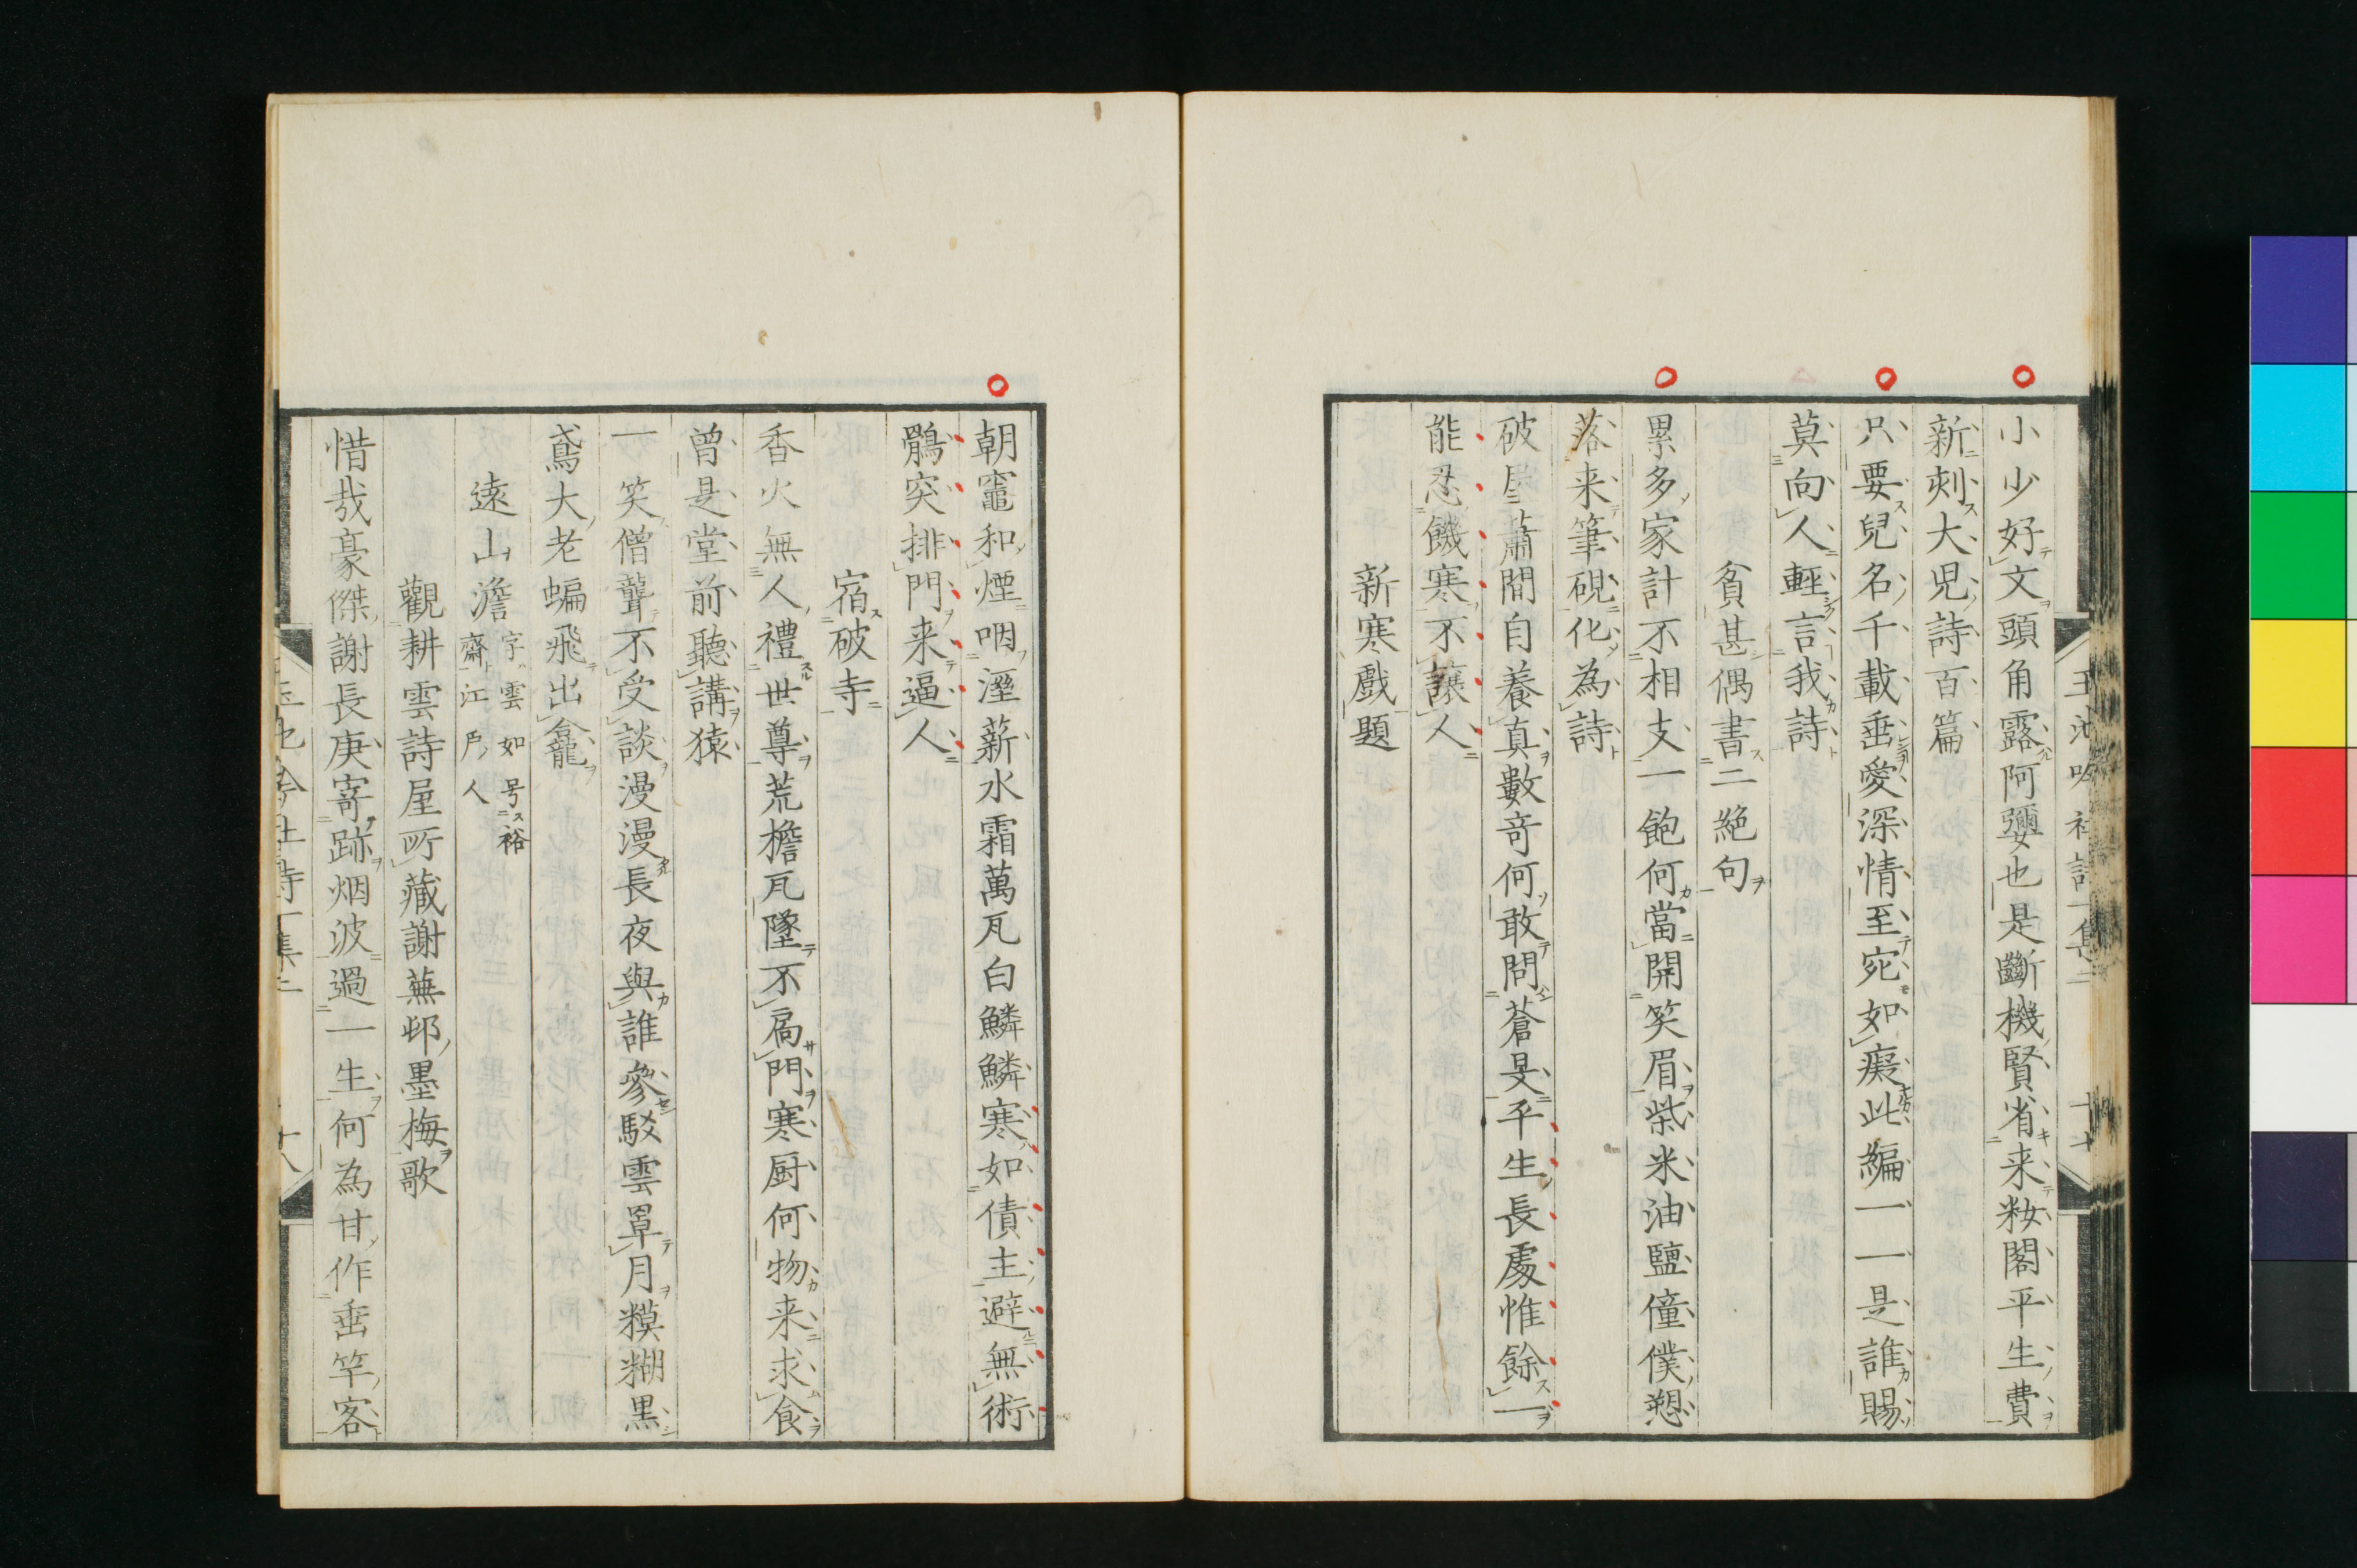 小少好文頭角露阿彌也是斷機賢省来粧閣平生費
新刻大児詩百篇
只要兒名千載垂愛深情至宛如癡此編一一是誰賜
莫向人輕言我詩
貧甚偶書二絶句
累多家計不相支一飽何當開笑眉柴米油鹽僮僕愬
落来筆硯化為詩
破屋蕭間自養真數竒何敢問蒼旻平生長處惟餘一
能忍饑寒不讓人
新寒戲題
朝竈和煙咽溼薪水霜萬瓦白鱗鱗寒如債主避無術
鶻突排門来逼人
宿破寺
香火無人禮世尊荒檐瓦墜不扃門寒厨何物来求食
曾是堂前聽講猿
一笑僧聾不受談漫漫長夜與誰參駁雲罩月糢糊黒
鳶大老蝙飛出龕
遠山澹
字雲如号裕
齋江戸人
觀耕雲詩屋所藏謝蕪邨墨梅歌
惜哉豪傑謝長庚寄跡烟波過一生何為甘作垂竿客